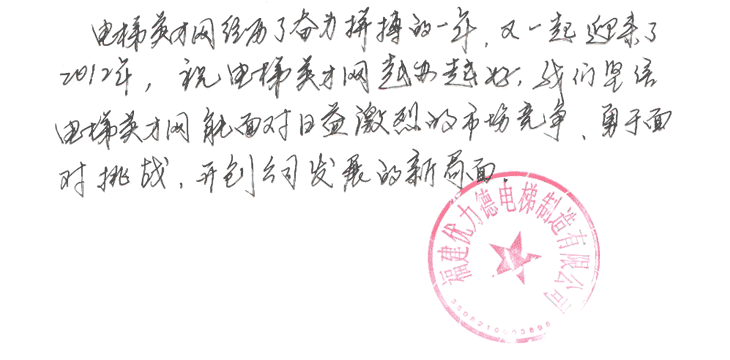 电梯英才网经历了奋力拼搏的一年,又一起迎来了
2012年,祝电梯英才网越办越好,我们坚信
电梯英才网能面对日益激烈的市场竞争、勇于面
对挑战,开创公司发展的新局面.
福建优力德电梯制造有限公司